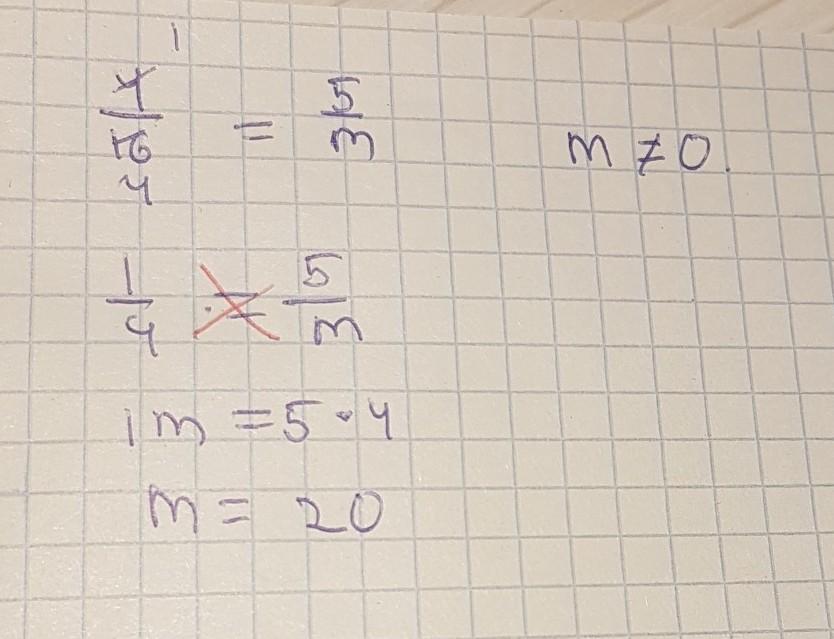 1
4/16 = 5/m m ≠ 0.
4
1/4 = 5/m
1m = 5 · 4
m = 20